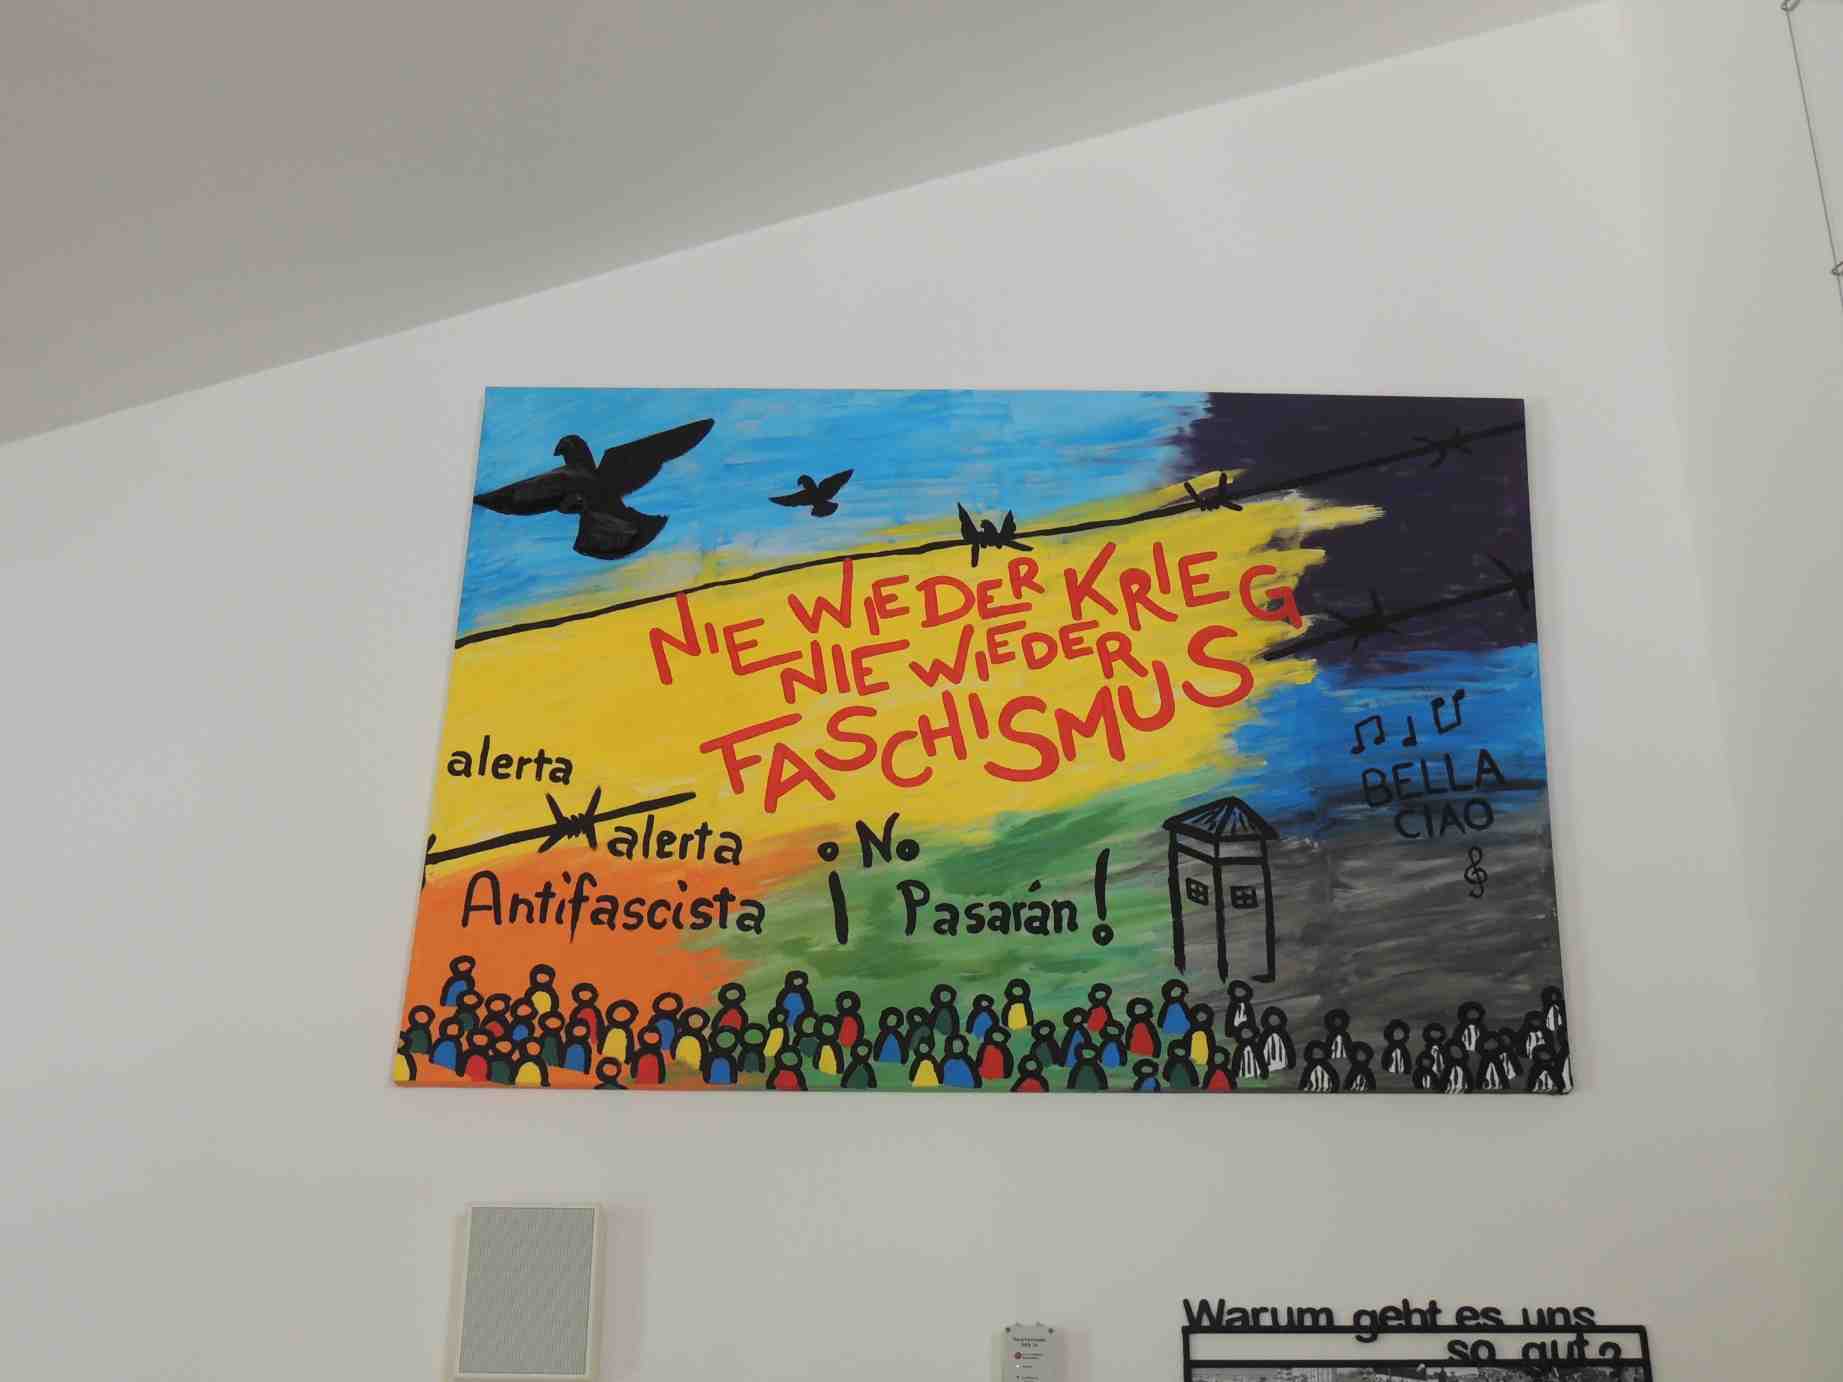 NIE WIEDER KRIEG
NIE WIEDER
FASCHISMUS
alerta
alerta
Antifascista
¡No
Pasarán!
BELLA
CIAO
Warum geht es uns
so gut?